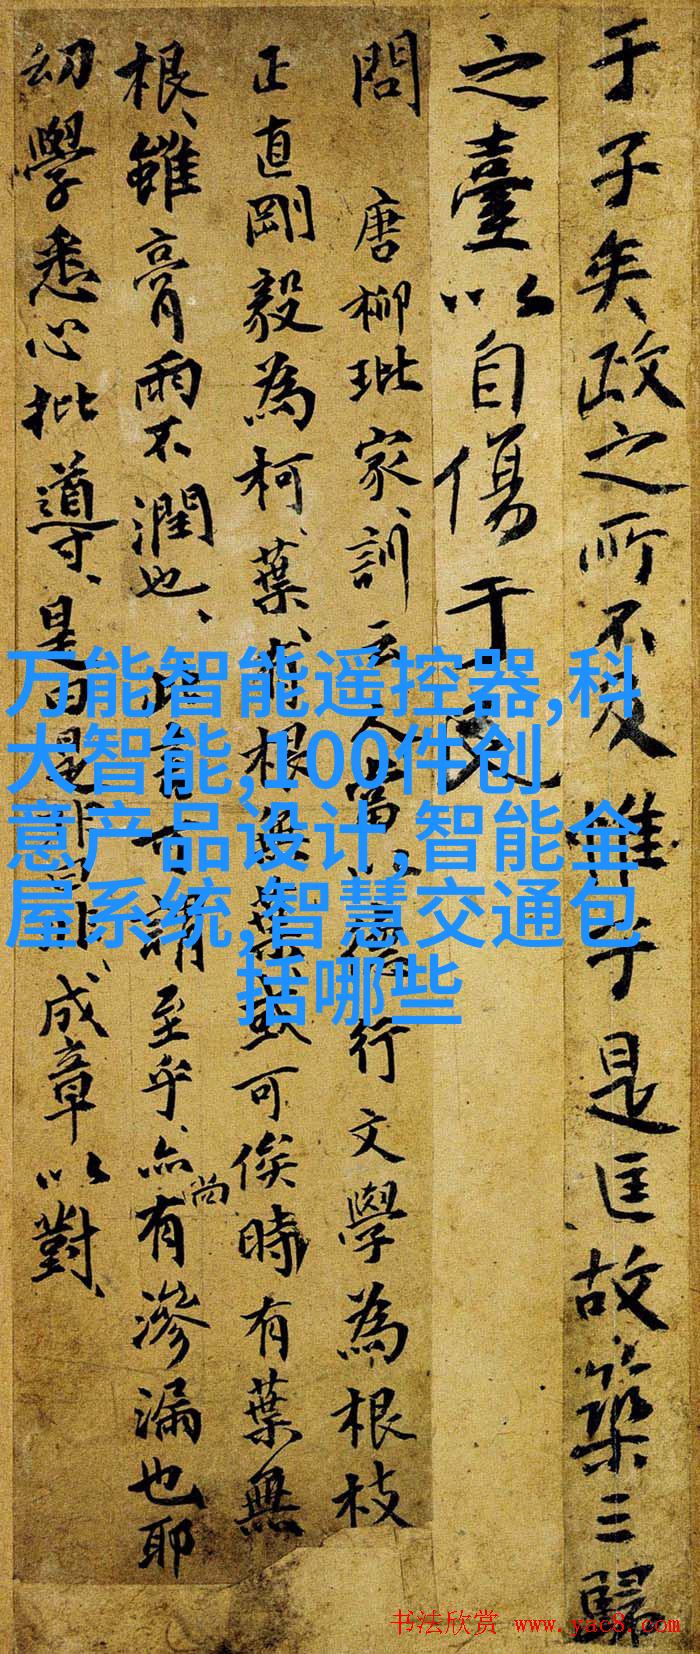 于子矣政之所不及惟于是匡故築三歸
之臺以自傷于
問 唐柳玭家訓云 行文學為根枝
正直剛毅為柯葉有根無葉或可俟時有葉無
根雖膏雨不潤也 至乎亦尚有滲漏也耶
幼學悉心批導是 成章以對
万能智能遥控器,科
大智能,100件创
意产品设计,智能全
屋系统,智慧交通包
括哪些
书法欣赏 www.yac8.com